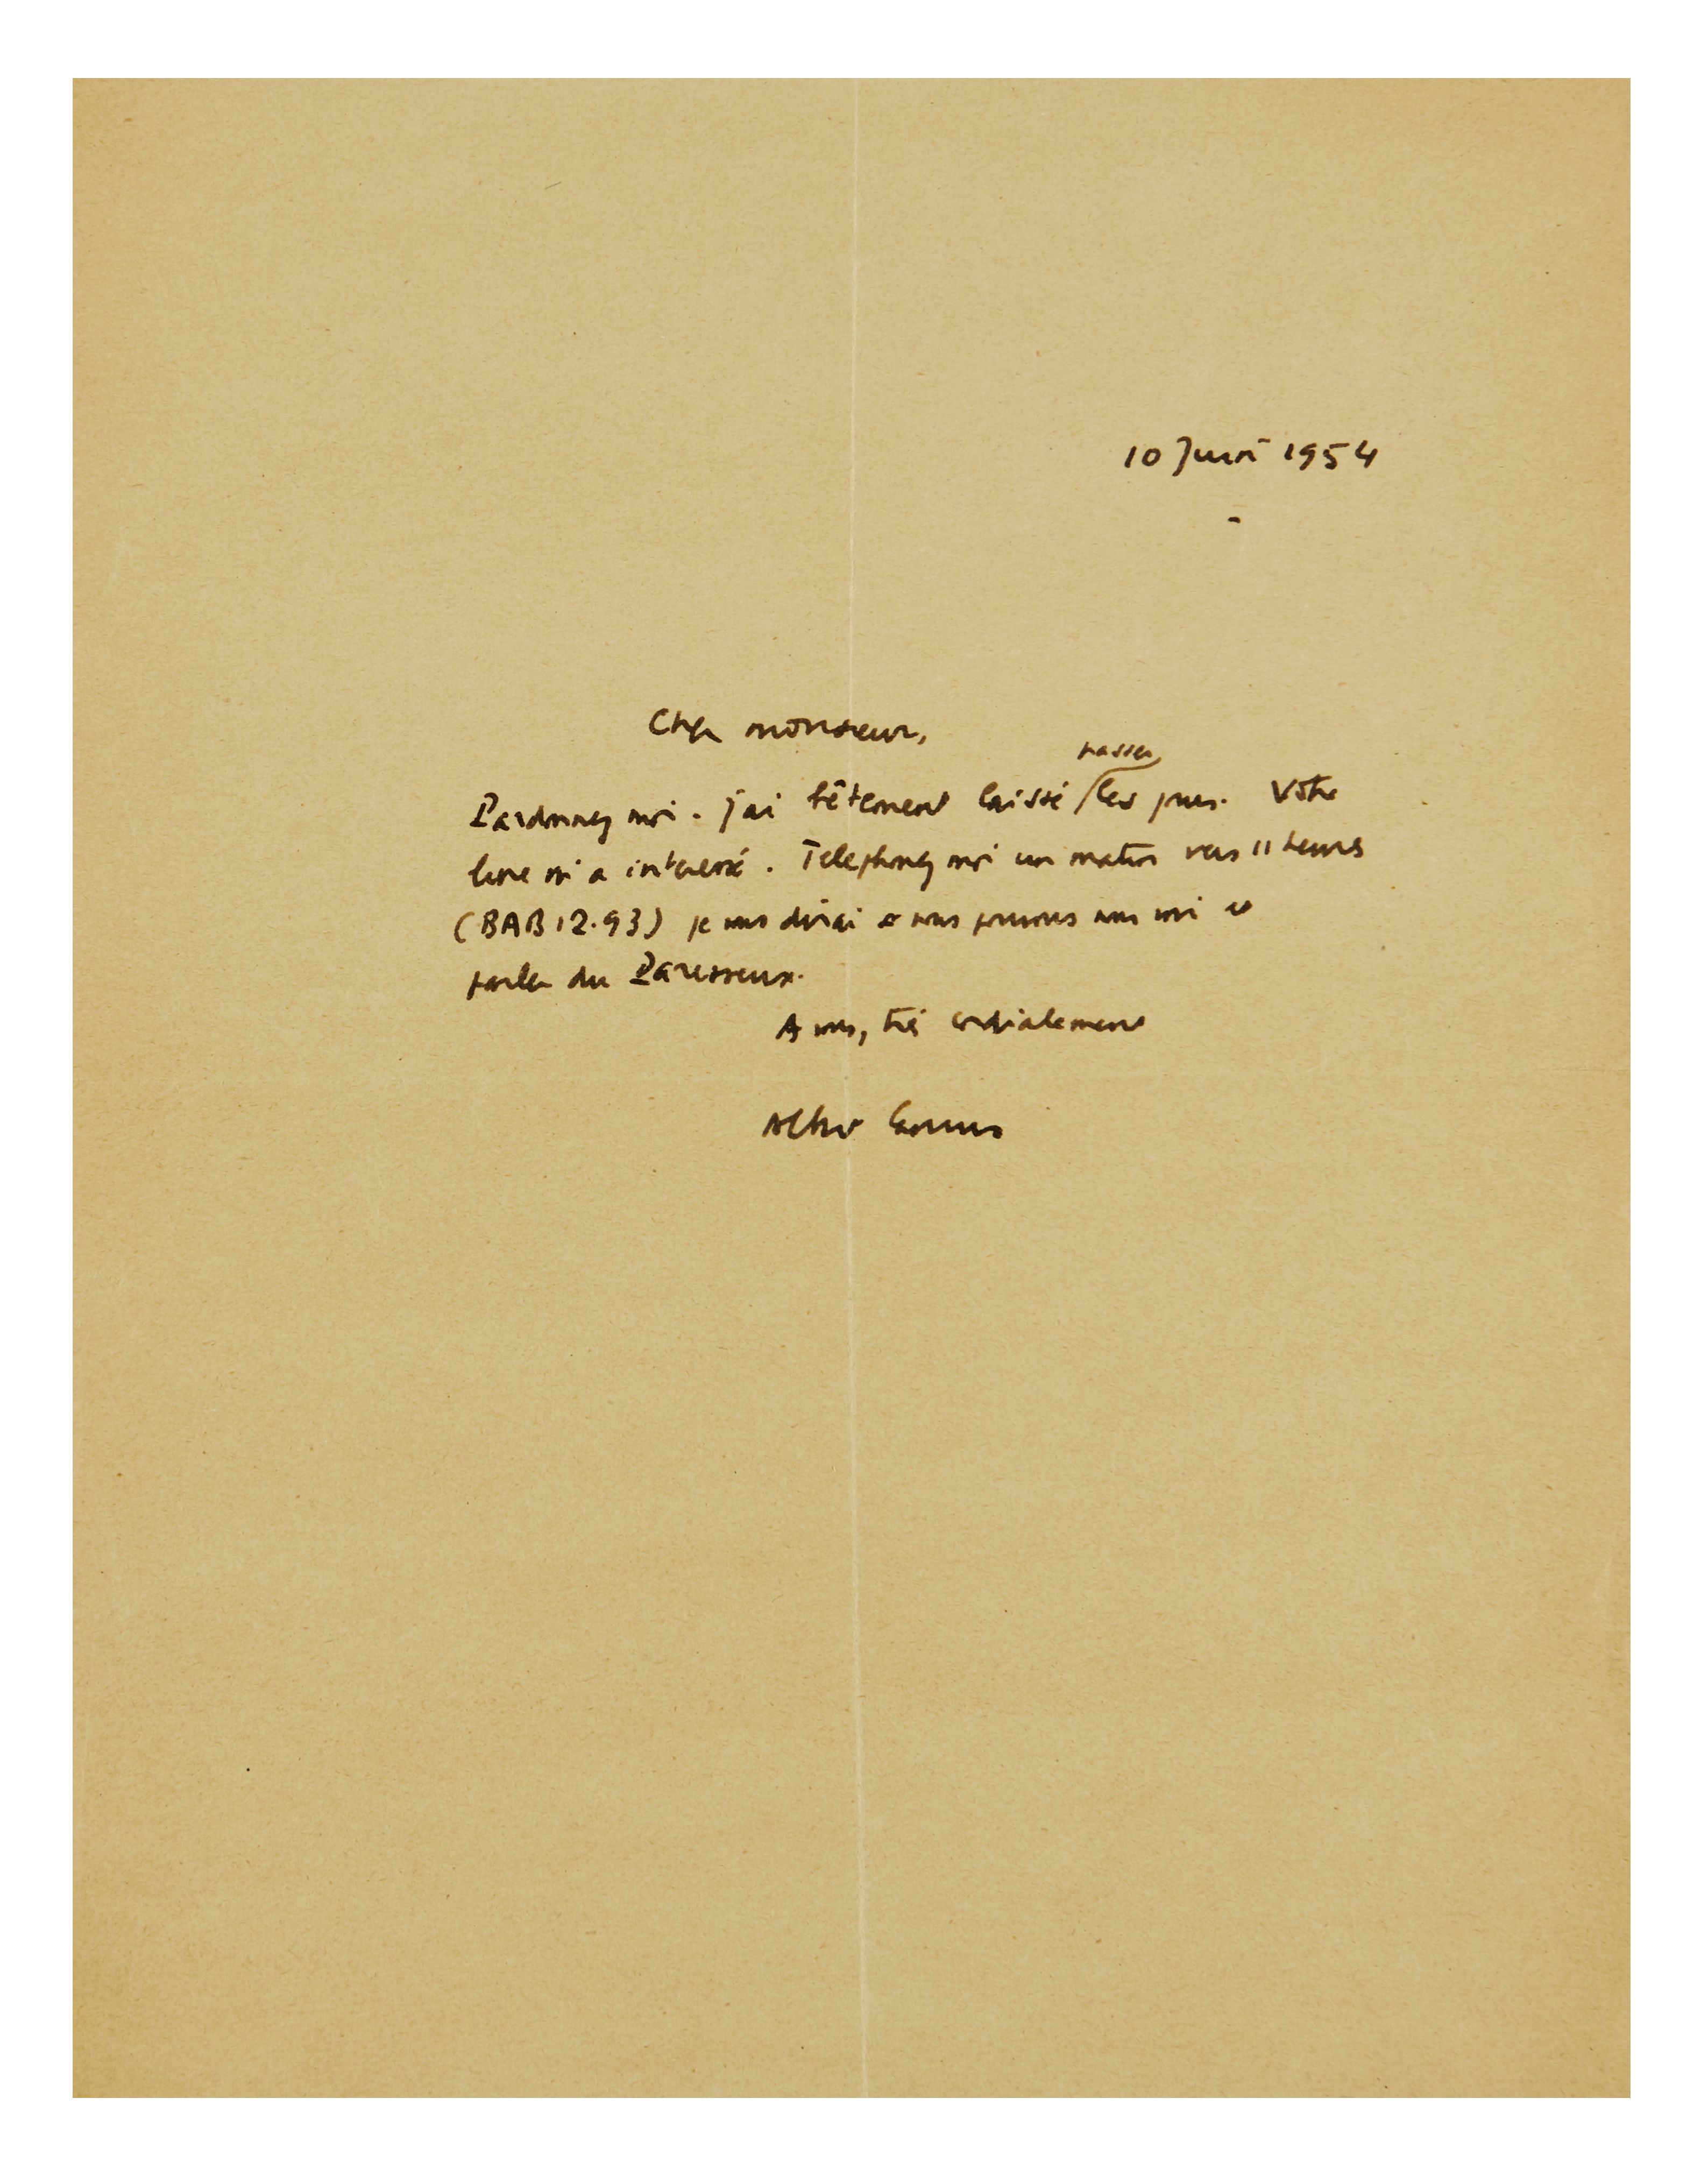 10 Juin 1954
Cher monsieur,
passer
Pardonnez moi. j'ai bêtement laissé les jours. Votre
livre m'a intéressé. Telephonez moi un matin vers 11 heures
(BAB 12.93) je vous dirai nous pourrons nous voir et
parler du Paresseux.
A vous, très cordialement
Albert Camus